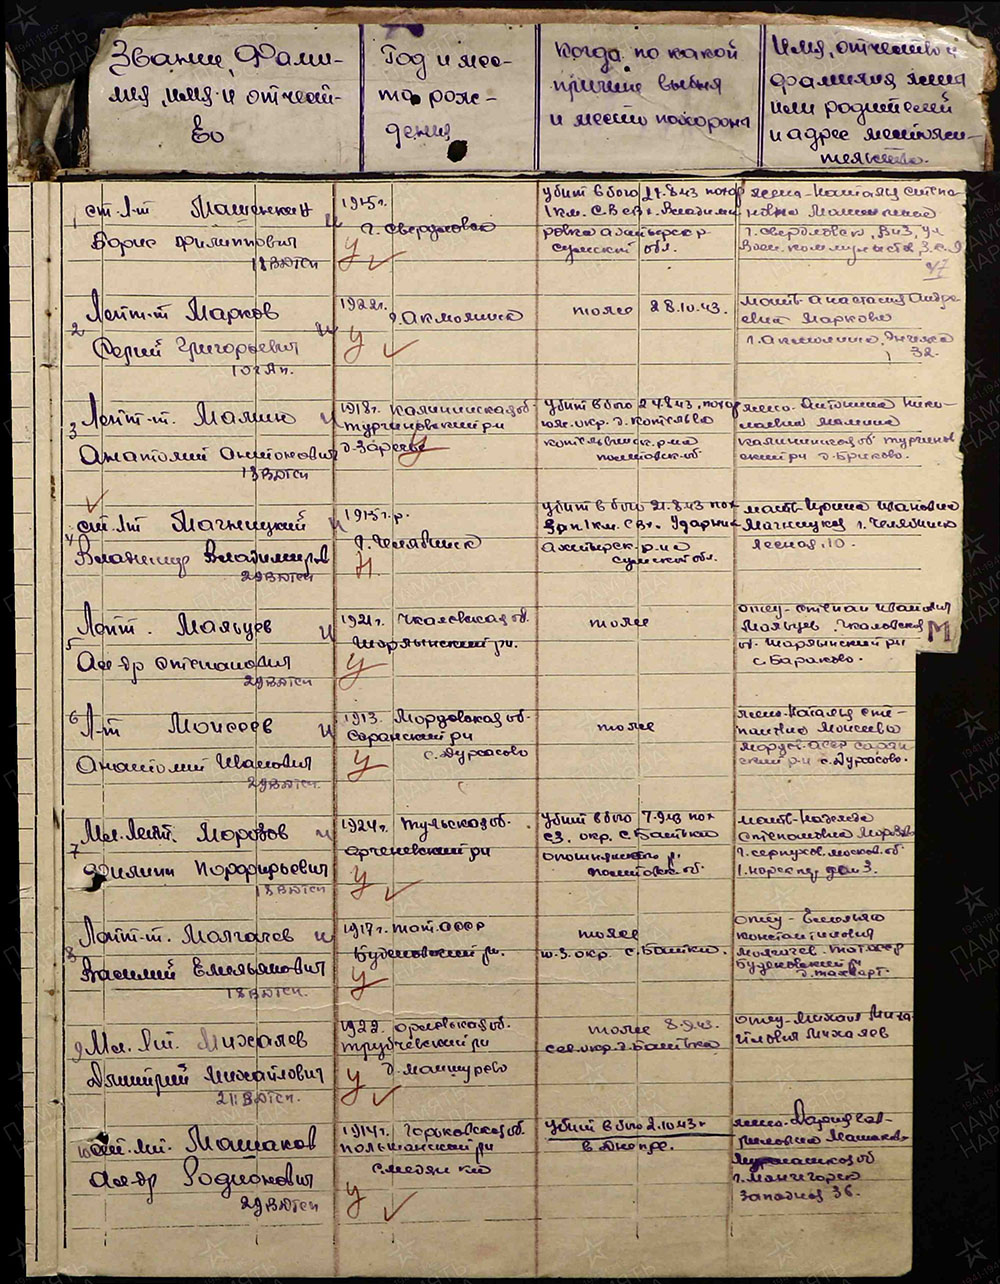 Звание, Фами-
лия, имя и отчест-
во
Год и мес-
то рож-
дения
Когда, по какой
причине выбыл
и место похорон
Имя, отчество и
фамилия жены
или родителей
и адрес местожи-
тельства.
1 ст. л-т Машенкин
Борис Филиппович
18 ВДТСП
1915г.
г. Свердловск
У
убит в бою 27.8.43 похор
1 км. С.В
Сумской обл.
жена - Наталья Степа-
новна
г. Свердловск, ВИЗ, ул
47
2 Лейт-т Марков
Сергий Григорьевич
10 гв. п.
1922г.
г. Акмолинск
У
тоже 28.10.43.
мать Анастасия Андре
евна Маркова
г. Акмолинск,
32.
3 Лейт-т. Малин
Анатолий Антонович
18 ВДТСП
1918г. Калининская об.
Тургиновский р-н
д. Заречье
У
убит в бою 27.8.43, похор
юж. окр. д. Котельва
Котельвинск. р-на
Полтовск. об.
жена. Антонина Нико-
лаевна Малина
Калининская об Тургинов
ский р-н д. Бриково.
4 ст. л-т Магницкий
Владимир Владимиров
29 ВДТСП
1915г.р.
г. Челябинск
Н
убит в бою 21.8.43 пох
1 км. СВ г. Ударник
Ахтырск. р-на
Сумской обл.
мать - Ирина Ивановна
Магницкая г. Челябинск
Лесная, 10.
5 Лейт. Мальцев
Ал-др Степанович
29 ВДТСП
1921г. Чкаловская об.
Шарлыкский р-н.
У
тоже
отец - Степан Иванович
Мальцев. Чкаловская
об. Шарлыкский р-н
с. Бараково.
М
6 Л-т Моисеев
Анатолий Иванович
29 ВДТСП.
1913. Мордовская об.
Саранский р-н
с. Дурасово
У
тоже
жена - Наталья Сте-
пановна Моисеева
Мордов. АССР Саран
ский р-н с. Дурасово.
7 Мл. Лейт. Морозов
Филипп Порфирьевич
18 ВДТСП
1924г. Тульская об.
У
убит в бою 7.9.43 пох
СЗ. окр. с. Батьки
Опошнянский р.
Полтовск. об.
мать -
Степановна Морозов
г. Серпухов, Москов. об
дом 3.
8 Лейт-т. Молгачев
Василий Емельянович
18 ВДТСП.
1917г. Тат. АССР
Буденовский р-н.
У
тоже
ю.з. окр. с. Батьки.
отец - Емельян
Константинович
Молгачев. Тат АССР
Буденовский р-н
9 Мл. Л-т. Михалев
Дмитрий Михайлович
21: ВДТСП.
1922. Орловская об.
Трубчевский р-н
У
тоже 8.9.43.
сев. окр. г. Батьки
отец - Михаил Миха
йлович Михалев
10 ст. л-т. Машаков
Ал-др Родионович
29 ВДТСП
1914г. Горьковская об.
У
убит в бою 2.10.43г
в Днепре.
жена - Дария Гав-
риловна Машакова
Мурманская об
г. Мончегорск
Западная 36.